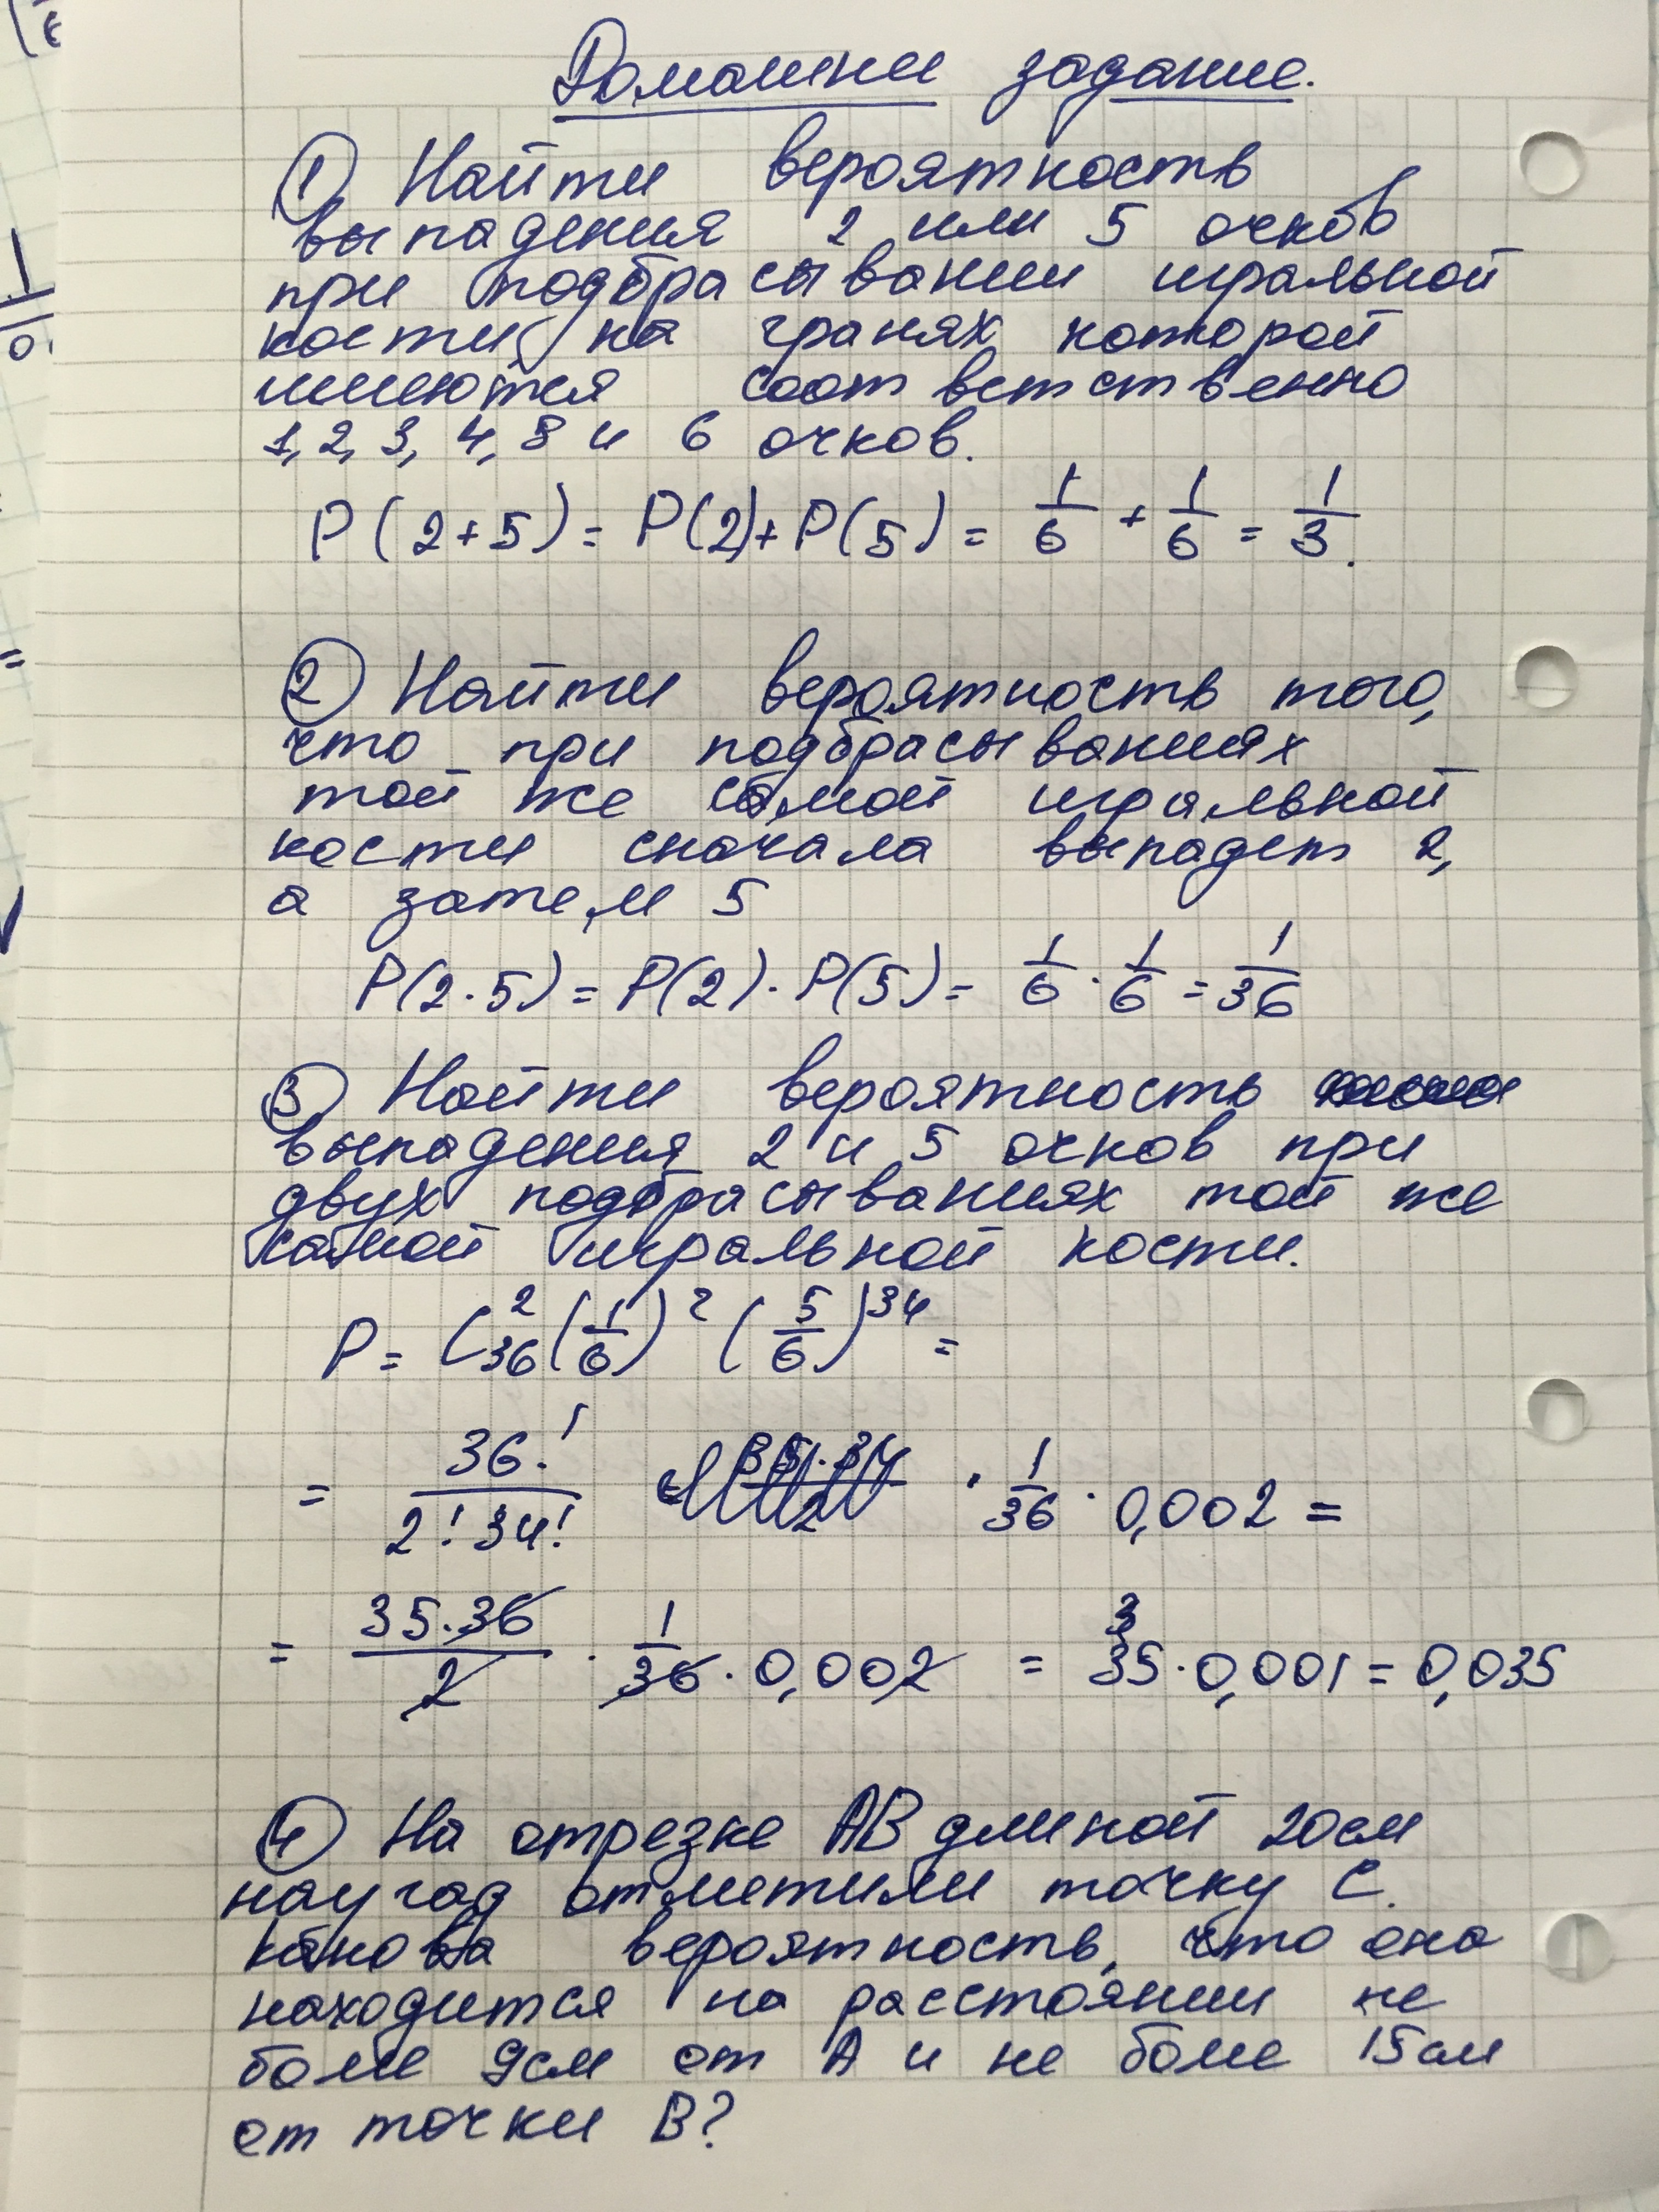 Домашнее задание.
① Найти вероятность
выпадения 2 или 5 очков
при подбрасывании игральной
кости, на гранях которой
имеются соответственно
1, 2, 3, 4, 5 и 6 очков.
P(2+5) = P(2)+P(5) = 1/6 + 1/6 = 1/3.
② Найти вероятность того,
что при подбрасываниях
той же самой игральной
кости сначала выпадет 2,
а затем 5
P(2·5) = P(2)·P(5) = 1/6 · 1/6 = 1/36
③ Найти вероятность
выпадения 2 и 5 очков при
двух подбрасываниях той же
самой игральной кости.
P = C²₃₆ (1/6)² (5/6)³⁴ =
= 36!/(2! 34!) · 1/36 · 0,002 =
= 35·36/2 · 1/36 · 0,002 = 35·0,001 = 0,035
④ На отрезке AB длиной 20 см
наугад отметили точку C.
какова вероятность, что она
находится на расстоянии не
более 9см от A и не более 15 см
от точки B?